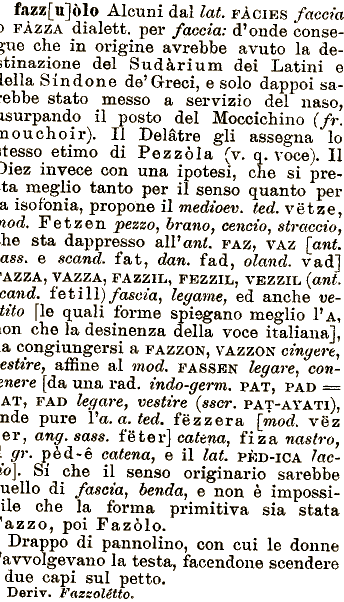 fazz[u]òlo Alcuni dal lat. FÀCIES faccia
o FÀZZA dialett. per faccia: d'onde conse-
gue che in origine avrebbe avuto la de-
stinazione del Sudàrium dei Latini e
della Sindone de' Greci, e solo dappoi sa-
rebbe stato messo a servizio del naso,
usurpando il posto del Moccichino (fr.
mouchoir). Il Delâtre gli assegna lo
stesso etimo di Pezzòla (v. q. voce). Il
Diez invece con una ipotesi, che si pre-
sta meglio tanto per il senso quanto per
la isofonia, propone il medioev. ted. vëtze,
mod. Fetzen pezzo, brano, cencio, straccio,
che sta dappresso all'ant. FAZ, VAZ [ant.
sass. e scand. fat, dan. fad, oland. vad]
FAZZA, VAZZA, FAZZIL, FEZZIL, VEZZIL (ant.
scand. fetill) fascia, legame, ed anche ve-
stito [le quali forme spiegano meglio l'A,
non che la desinenza della voce italiana],
da congiungersi a FAZZON, VAZZON cingere,
vestire, affine al mod. FASSEN legare, con-
tenere [da una rad. indo-germ. PAT, PAD =
FAT, FAD legare, vestire (sscr. PAT-AYATI),
onde pure l'a. a. ted. fëzzera [mod. vëz
zer, ang. sass. fëter] catena, fiza nastro,
il gr. pèd-ê catena, e il lat. PÈD-ICA lac-
cio]. Sì che il senso originario sarebbe
quello di fascia, benda, e non è impossi-
bile che la forma primitiva sia stata
Fazzo, poi Fazòlo.
Drappo di pannolino, con cui le donne
s'avvolgevano la testa, facendone scendere
i due capi sul petto.
Deriv. Fazzolétto.